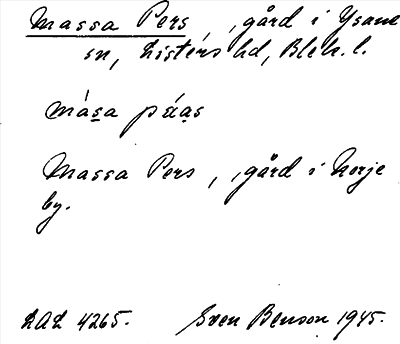 Massa Pers, gård i Ysane
sn, Listers hd, Blek. l.
mása páas
Massa Pers, gård i Norje
by.
LAL 4265. Sven Benson 1945.